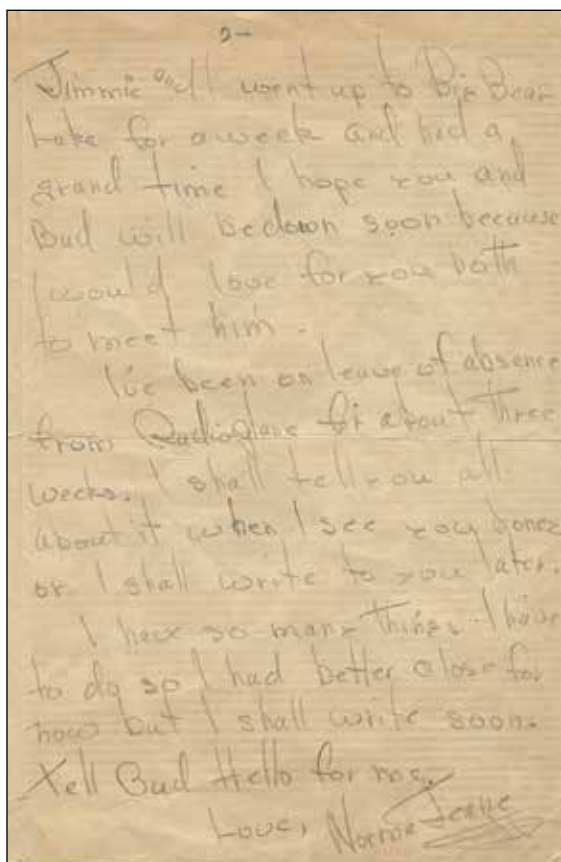 2-
Jimmie and I went up to Big Bear
Lake for a week and had a
grand time I hope you and
Bud will be down soon because
I would love for you both
to meet him.
I've been on leave of absence
from Radioplane for about three
weeks. I shall tell you all
about it when I see you honey
or I shall write to you later.
I have so many things I have
to do so I had better close for
now but I shall write soon.
Tell Bud Hello for me.
Love, Norma Jeane